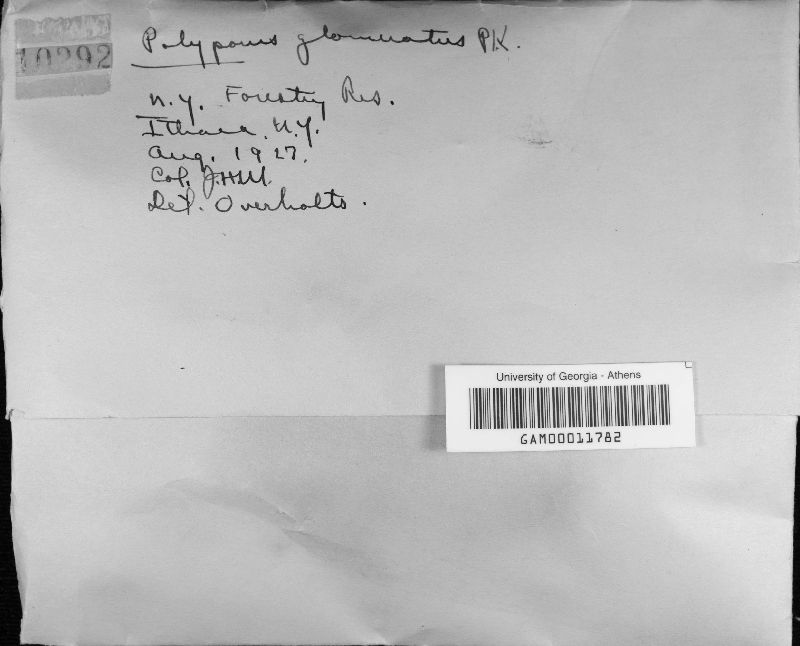 10292
Polyporus glomeratus PK.
N.Y. Forestry Res.
Ithaca, N.Y.
Aug. 1927.
Col. J.H.M.
Det. Overholts.
University of Georgia - Athens
GAM00011782